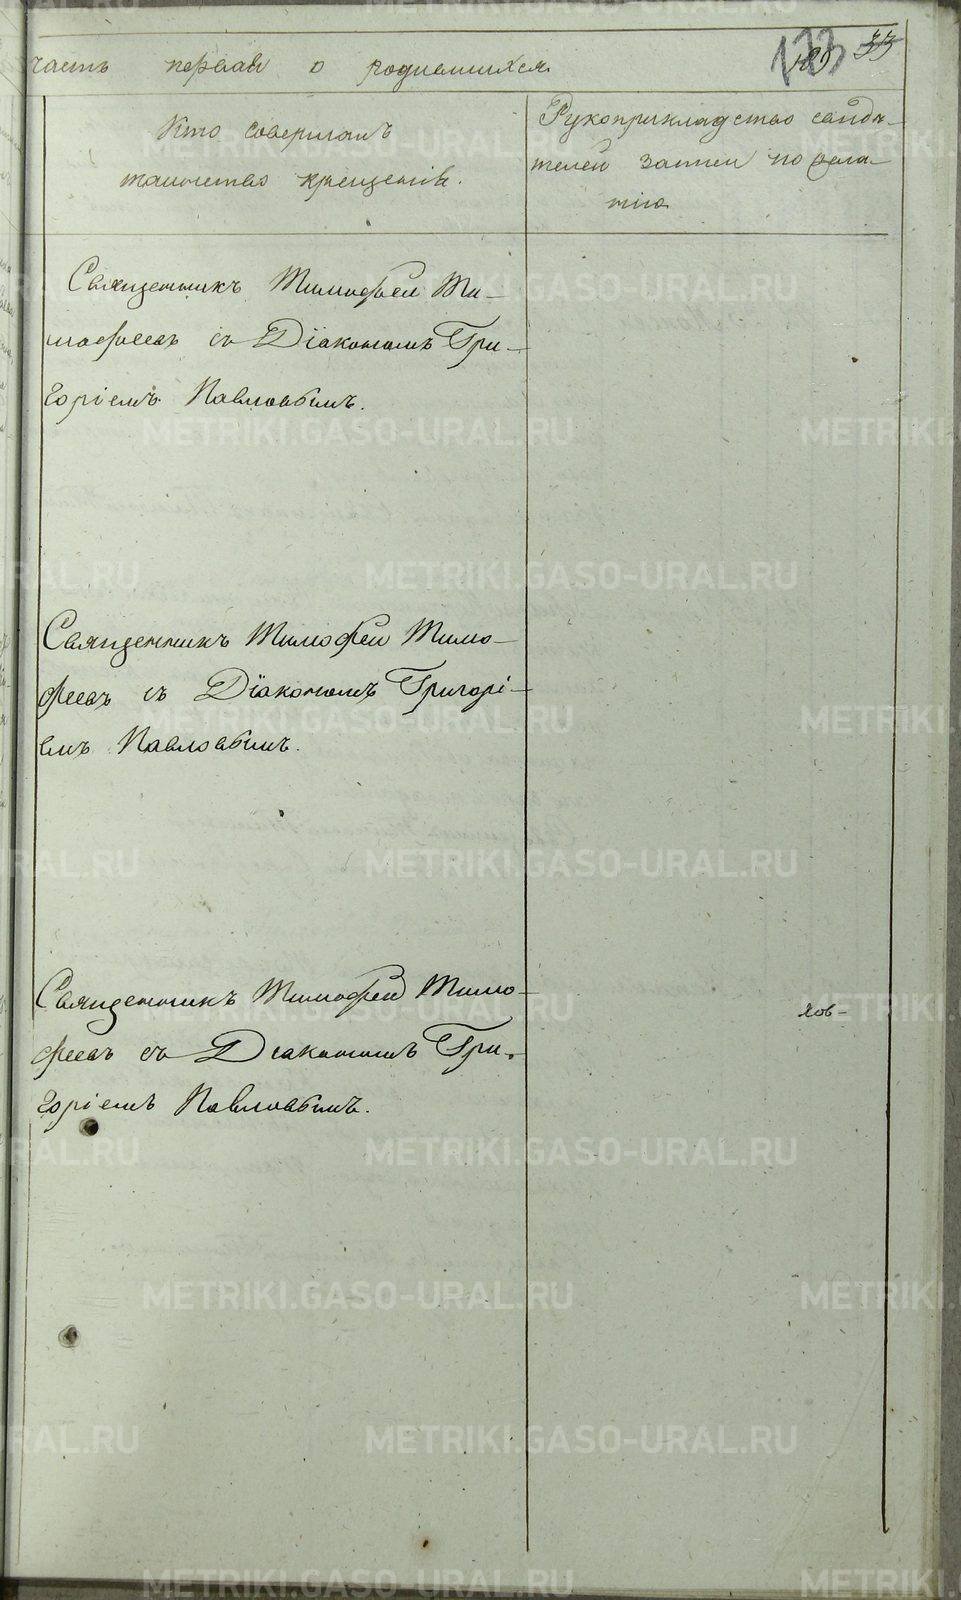 часть первая о родившихся
173
33
Кто совершалъ
таинство крещенія.
Рукоприкладство свидѣ-
телей записи по жела-
нію
Священникъ Тимофей Ти-
мофеевъ съ Діакономъ Гри-
горіемъ Павловымъ.
Священникъ Тимофей Тимо-
феевъ съ Діакономъ Григорі-
емъ Павловымъ.
Священникъ Тимофей Тимо-
феевъ съ Діакономъ Гри-
горіемъ Павловымъ.
ков-
METRIKI.GASO-URAL.RU